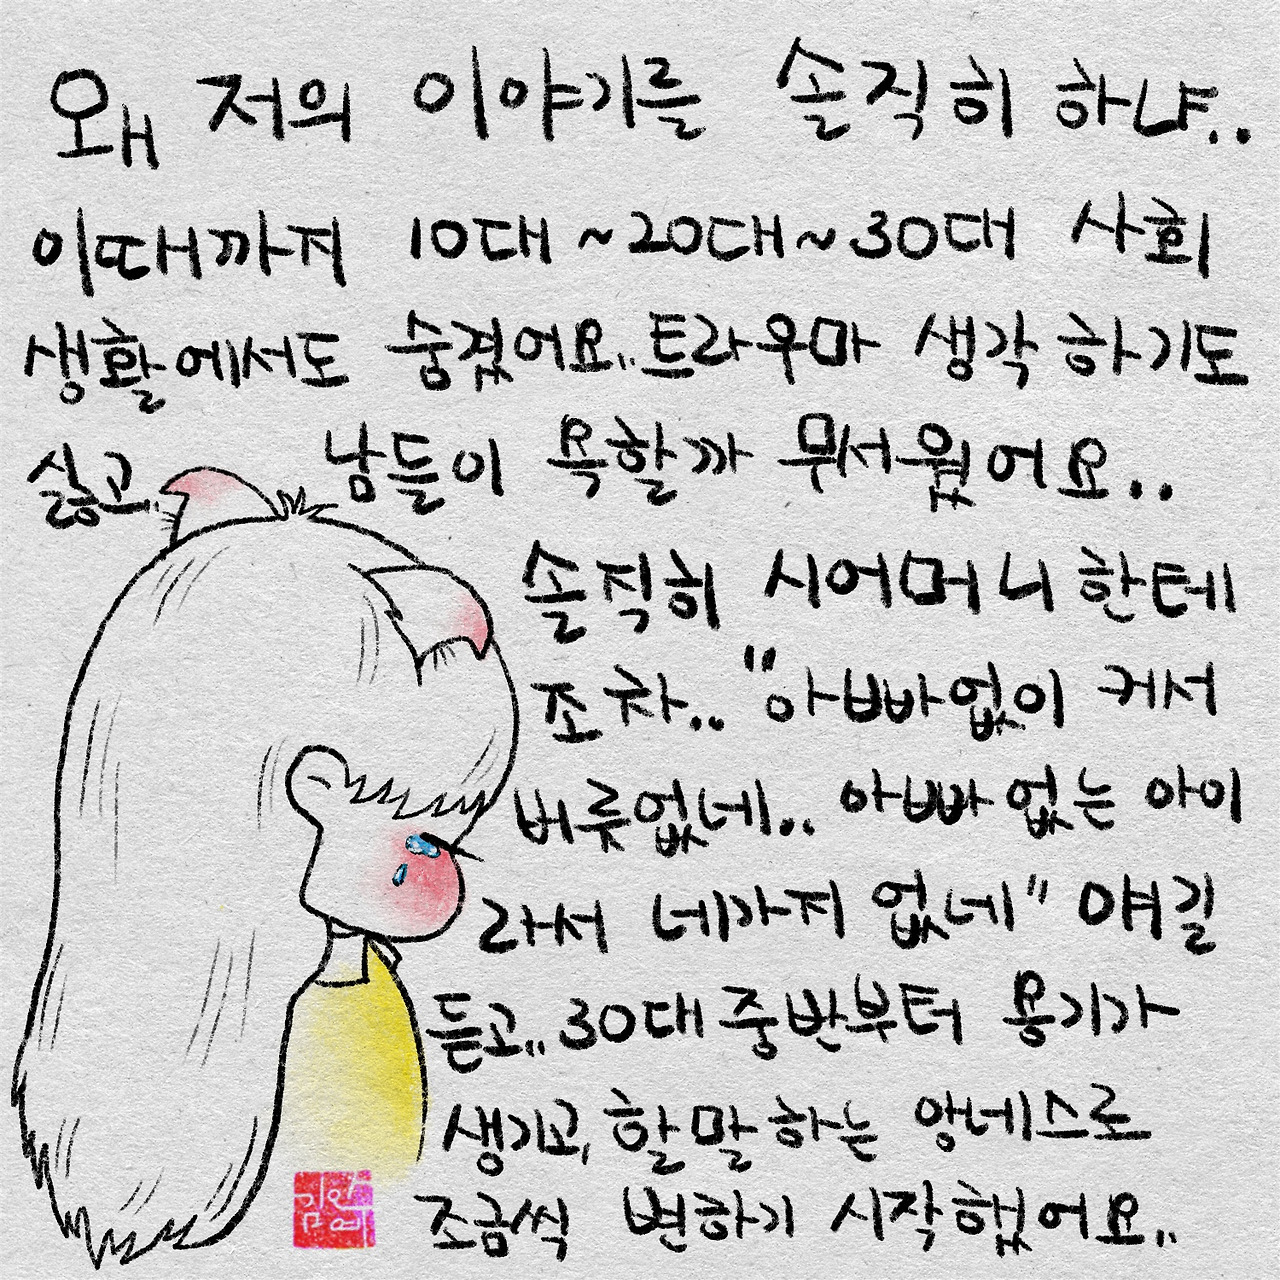 왜 저의 이야기를 솔직히 하냐..
이때까지 10대~20대~30대 사회
생활에서도 숨겼어요..트라우마 생각하기도
싫고, 남들이 욕할까 무서웠어요..
솔직히 시어머니한테
조차.. "아빠없이 커서
버릇없네.. 아빠없는 아이
라서 네가지 없네" 얘길
듣고..30대중반부터 용기가
생기고, 할말하는 앙네스로
조금씩 변하기 시작했어요..